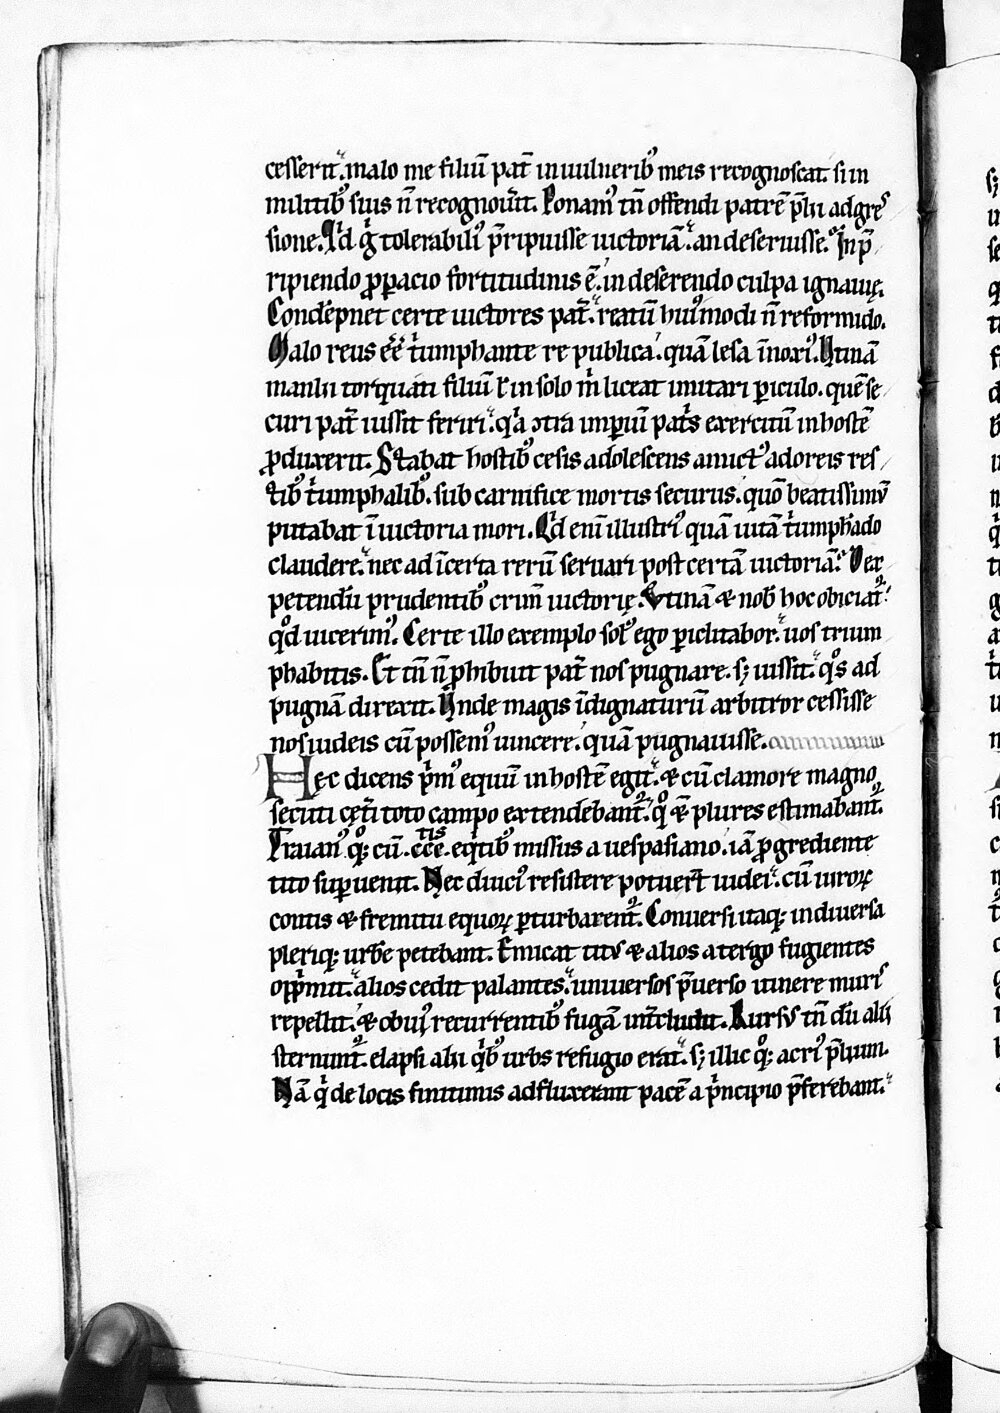 cesserit. malo me filiū pat̄ in uulnerib᾽ meis recognoscat. si in
militib᾽ suis n̄ recognou̾it. Ponam᾽ tn̄ offendi patrē p̄lii adgres
sione. Qͥd gͥ tolerabili᾽ p̄ripuisse uictoriā. an deseruisse. In p̄
ripiendo ꝓꝑacio fortitudinis ē. in deserendo culpa ignauię.
Condēpnet certe uictores pat̄. reatū hui᾽modi n̄ reformido.
Malo reus eē̄ tͥumphante re publica. quā lesa īnoxi᾽. Utinā
manlii torquati filiū ł in solo m̄ liceat imitari ꝑiculo. quē se
curi pat̄ iussit feriri. qͥa ɔtra imꝑiū patͥs exercitū in hostē
ꝓduxerit. Stabat hostib᾽ cesis adolescens amict᾽ adoreis res
tib᾽ tͥumphalib᾽. sub carnifice mortis securus. quō beatissimū
putabat ī uictoria mori. Qͥd enī illustri᾽ quā uitā tͥumphādo
claudere. nec ad īcerta rerū seruari post certā uictoriā. O ex
petendū prudentib᾽ crim̄ uictorię. Utinā & nob̄ hoc obiciat᾽.
qͦd uicerim᾽. Certe illo exemplo sol᾽ ego ꝑiclitabor. uos trium
phabitis. Et tn̄ n̄ ꝓhibuit pat̄ nos pugnare. s; iussit. qͦs ad
pugnā direxit. Unde magis īdignaturū arbitror cessisse
nos iudeis cū possem᾽ uincere. quā pugnauisse.
Hęc dicens pͥm᾽ equū in hostē egit. & cū clamore magno
secuti cęt̄i toto campo extendebant᾽. qͦ & plures estimabant᾽.
Traian᾽ qͦq; cū .ccc.tis eqͥtib᾽ missus a uespasiano. iā ꝓgrediente
tito suꝑuenit. Nec diuci᾽ resistere potuer̄t iudei. cū uiroꝝ
contis & fremitu equoꝝ ꝑturbarent᾽. Conuersi itaq; in diuersa
pleriq; urbē petebant. Emicat tit᾽ & alios a tergo fugientes
oppͥmit. alios cedit palantes. uniuersos p̄uerso itinere muris
repellit. & obui᾽ recurrentib᾽ fugā int̄cludit. Rursū tn̄ dū alii
sternunt᾽. elapsi alii qͥb᾽ urbs refugio erat. s; illic qͦq; acri᾽ p̄lium.
Nā qͥ de locis finitimis adfluxerant pacē a pͥncipio p̄ferebant.